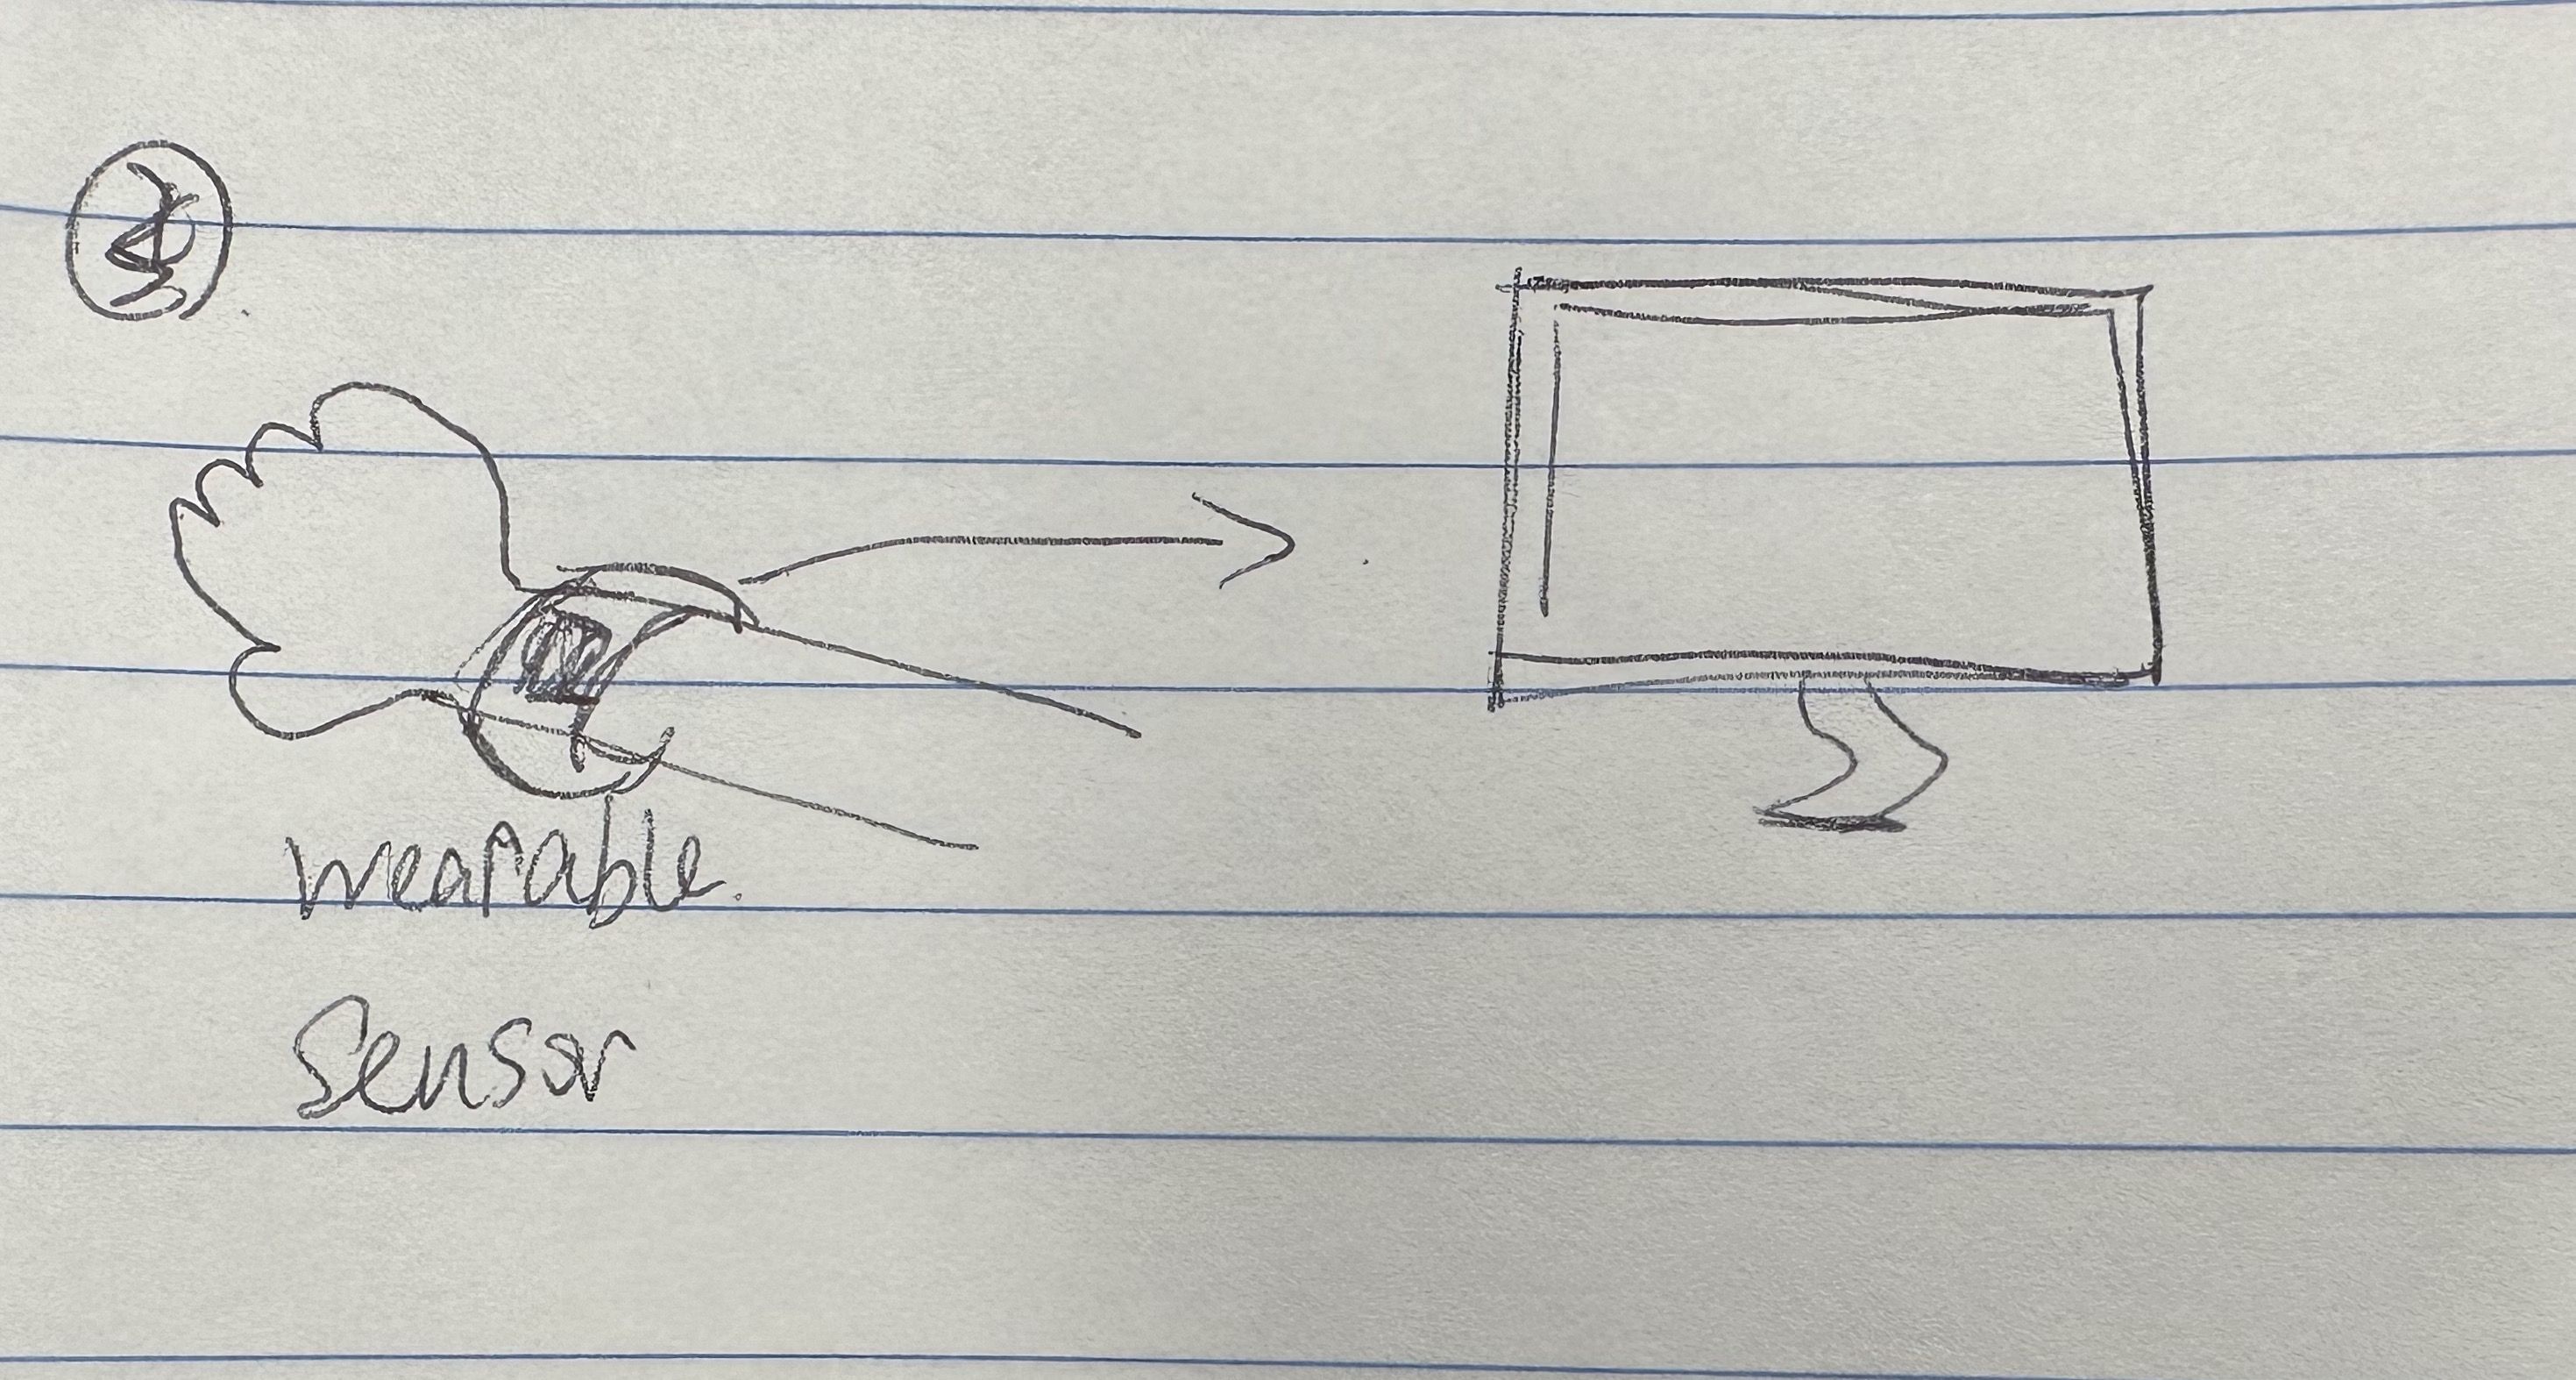 wearable.
Sensor